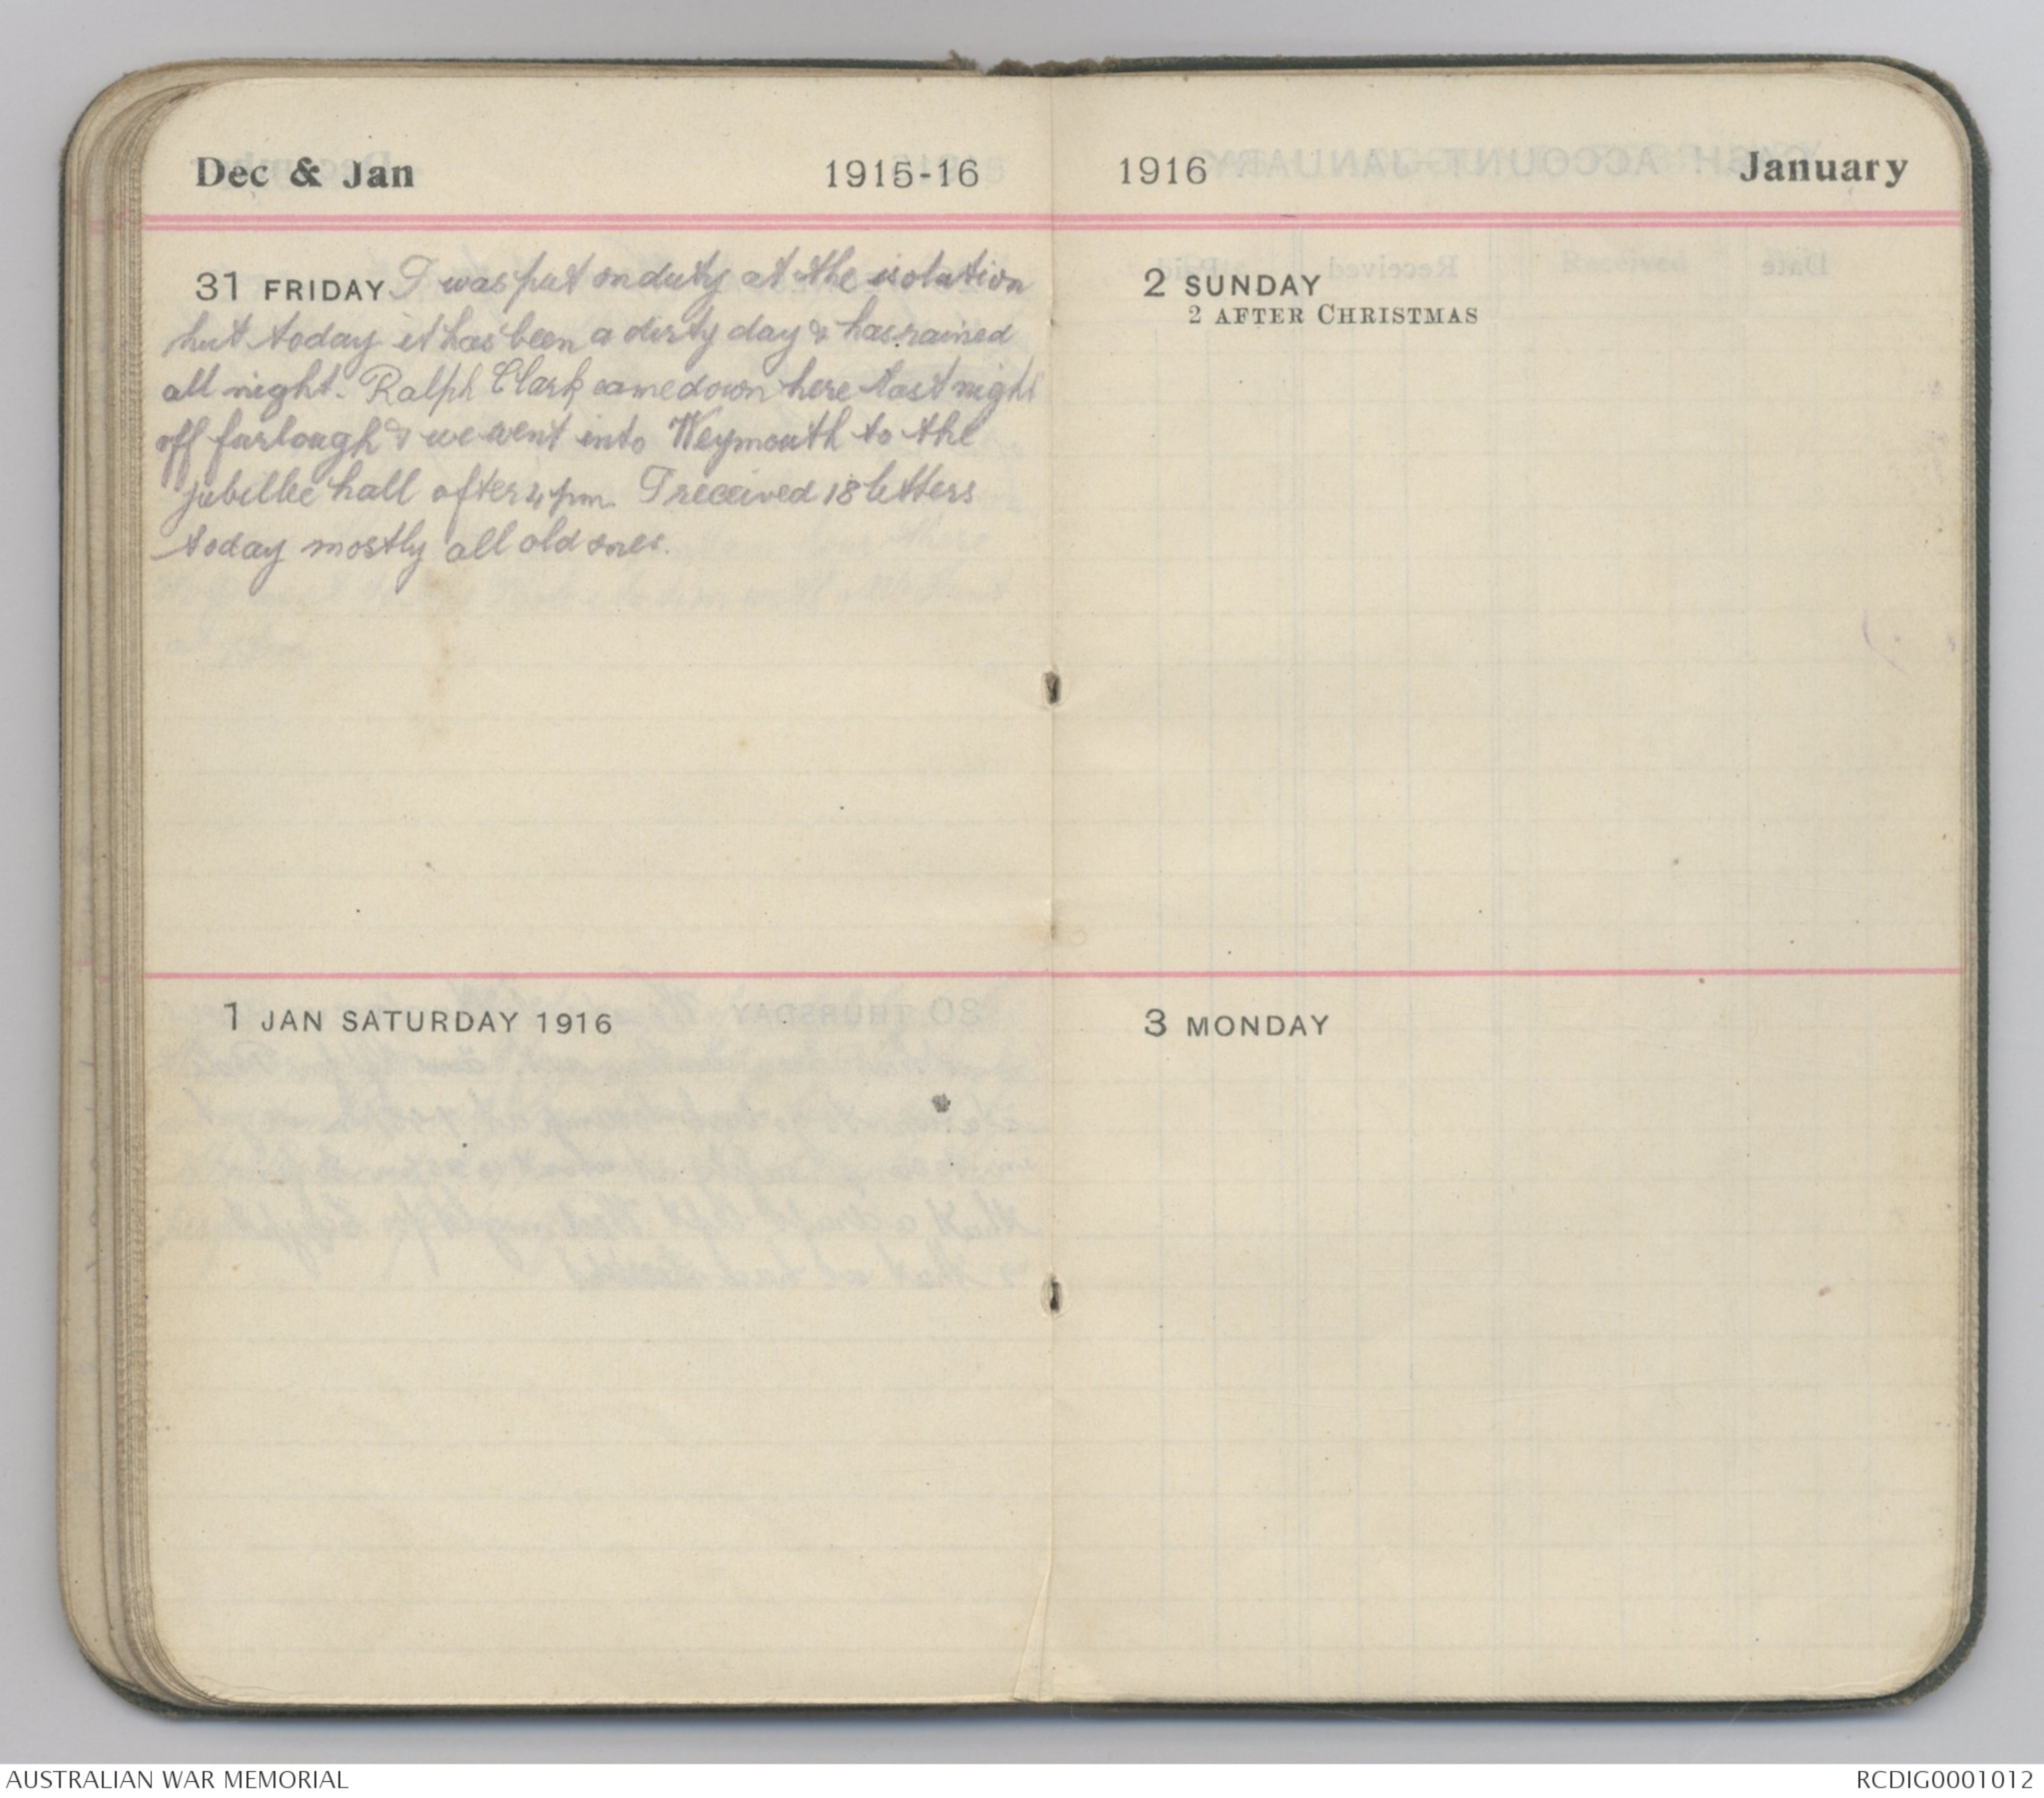 Dec & Jan 1915-16
31 FRIDAY I was put on duty at the isolation
hut today it has been a dirty day & has rained
all night. Ralph Clark came down here last night
off furlough & we went into Weymouth to the
jubillee hall after 4 pm. I received 18 letters
today mostly all old ones.
1 JAN SATURDAY 1916
1916 January
2 SUNDAY
2 AFTER CHRISTMAS
3 MONDAY
AUSTRALIAN WAR MEMORIAL
RCDIG0001012